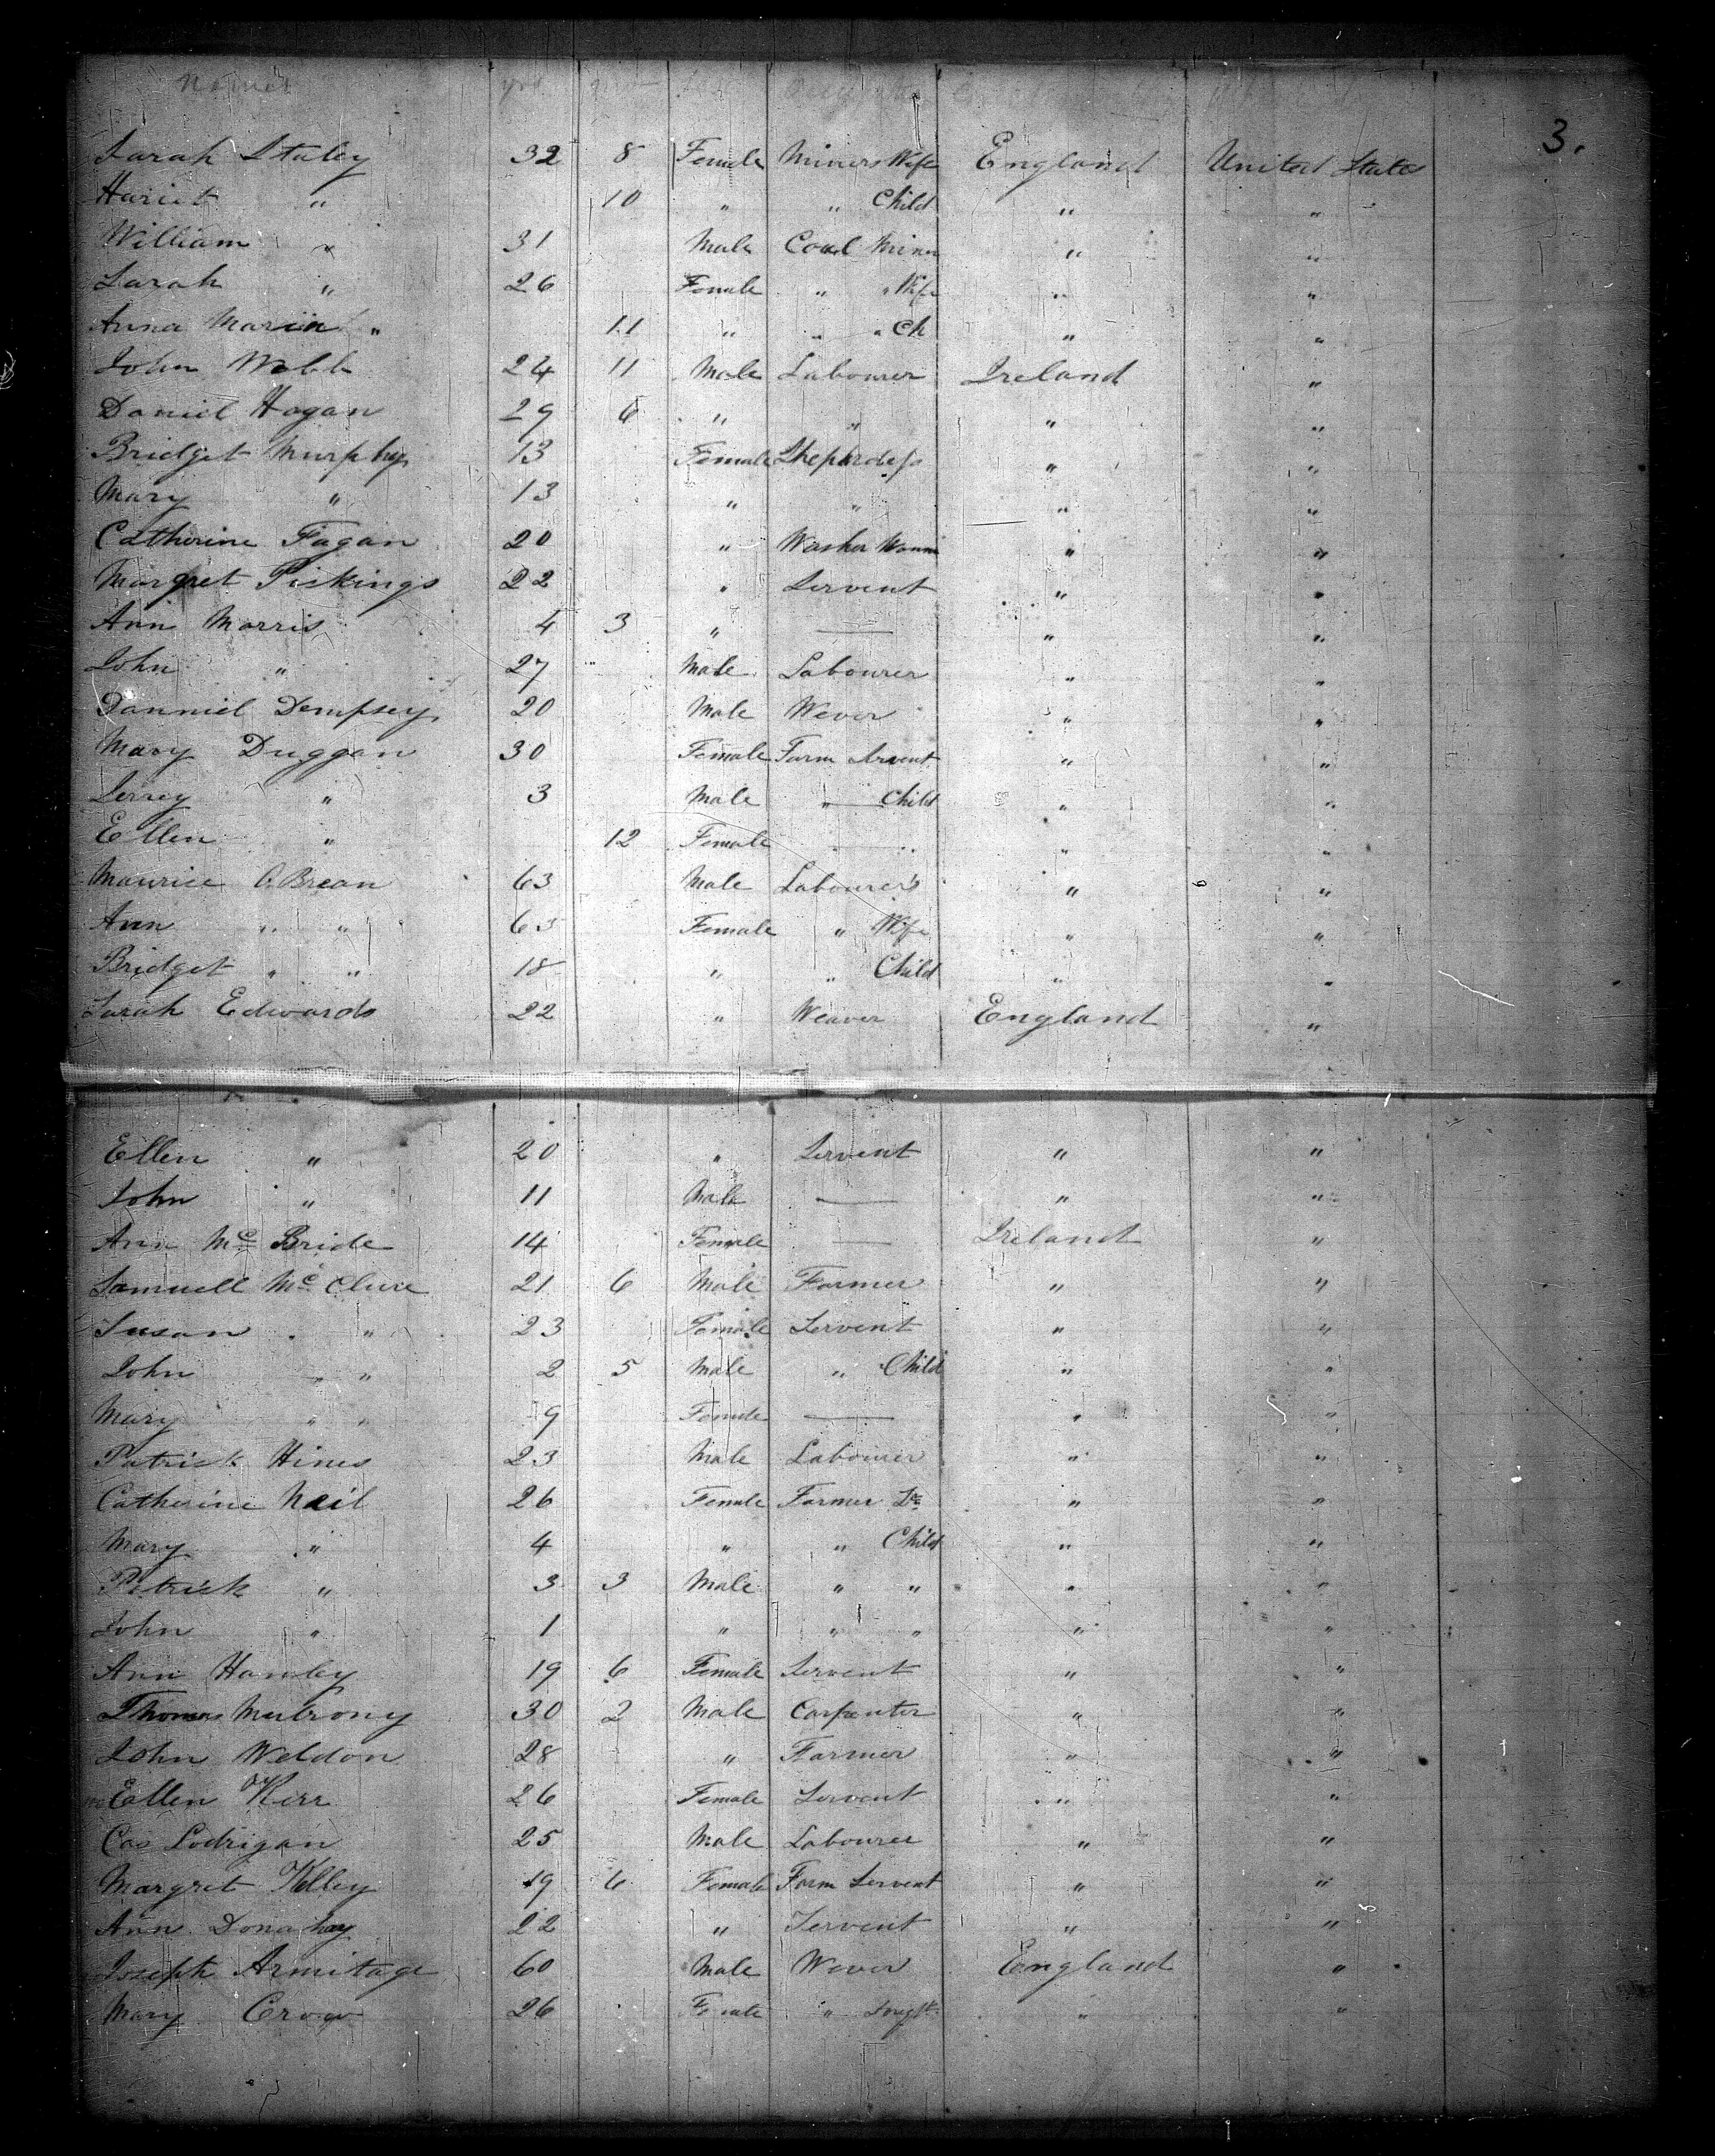 Names yrs mo Sex Occupation
3.
Sarah Staley 32 8 Female Miners Wife England United States
Hariet " 10 " " Child " "
William " 31 Male Coal Miner " "
Sarah " 26 Female " " Wife " "
Anna Maria " 11 " " " Ch " "
John Webb 24 11 Male Labourer Ireland "
Daniel Hagan 29 6 " " " "
Bridget Murphy 13 Female Shepardess " "
Mary " 13 " " " "
Catherine Fagan 20 " Washer Woman " "
Margret Pickings 22 " Servent " "
Ann Morris 4 3 " — " "
John " 27 " Male Labourer " "
Danniel Dempsey 20 Male Wever " "
Mary Duggan 30 Female Farm Servent " "
Jerrey " 3 Male " Child " "
Ellen " 12 Female " " " "
Maurice O.Brean 63 Male Labourer's " "
Ann " " 63 Female " Wife " "
Bridget " " 18 " " Child " "
Sarah Edwards 22 " Weaver England "
Ellen " 20 " Servent " "
John " 11 Male — " "
Ann Mc Bride 14 Female — Ireland "
Samuell Mc Clure 21 6 Male Farmer " "
Susan " 23 Female Servent " "
John " " 2 5 Male " Child " "
Mary " " 9 Female — " "
Patrick Hines 23 Male Labourer " "
Catherine Neil 26 Female Farmer " "
Mary " 4 " " Child " "
Patrick " 3 3 Male " " " "
John " 1 " " " " "
Ann Hanley 19 6 Female Servent " "
Thomas Mulrony 30 2 Male Carpenter " "
John Weldon 28 " Farmer " "
Ellen Kerr 26 Female Servent " "
Cas Lodrigan 25 Male Labourer " "
Margret Kelley 19 6 Female Farm Servent " "
Ann Donahay 22 " Servent " "
Joseph Armitage 60 Male Wever England "
Mary Crow 26 Female " " "